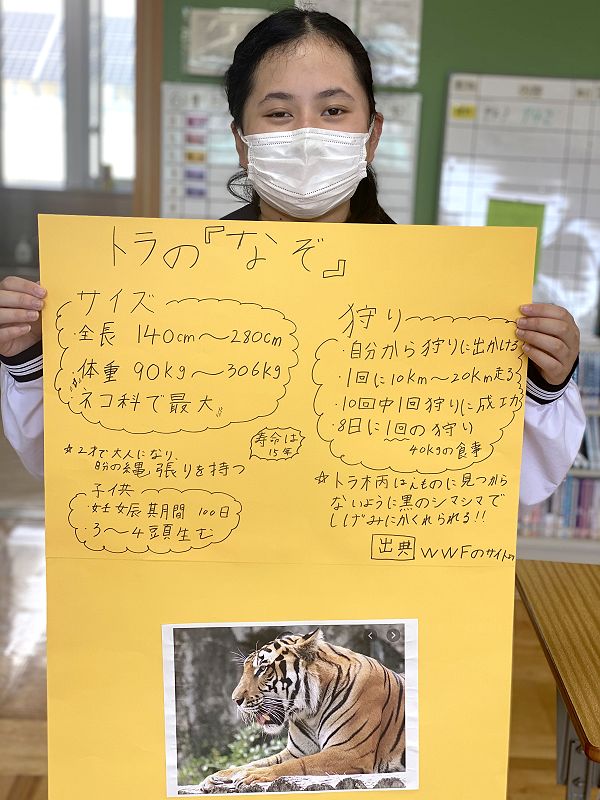 トラの『なぞ』
サイズ
・全長 140cm〜280cm
・体重 90kg〜306kg
・ネコ科で最大
☆2才で大人になり、
自分の縄張りを持つ
寿命は
15年
子供
・妊娠期間 100日
・3〜4頭生む
狩り
・自分から狩りに出かける
・1回に10km〜20km走る
・10回中1回狩りに成功
・8日に1回の狩り
40kgの食事
☆トラ柄はえものに見つから
ないように黒のシマシマで
しげみにかくれられる!!
出典 WWFのサイト